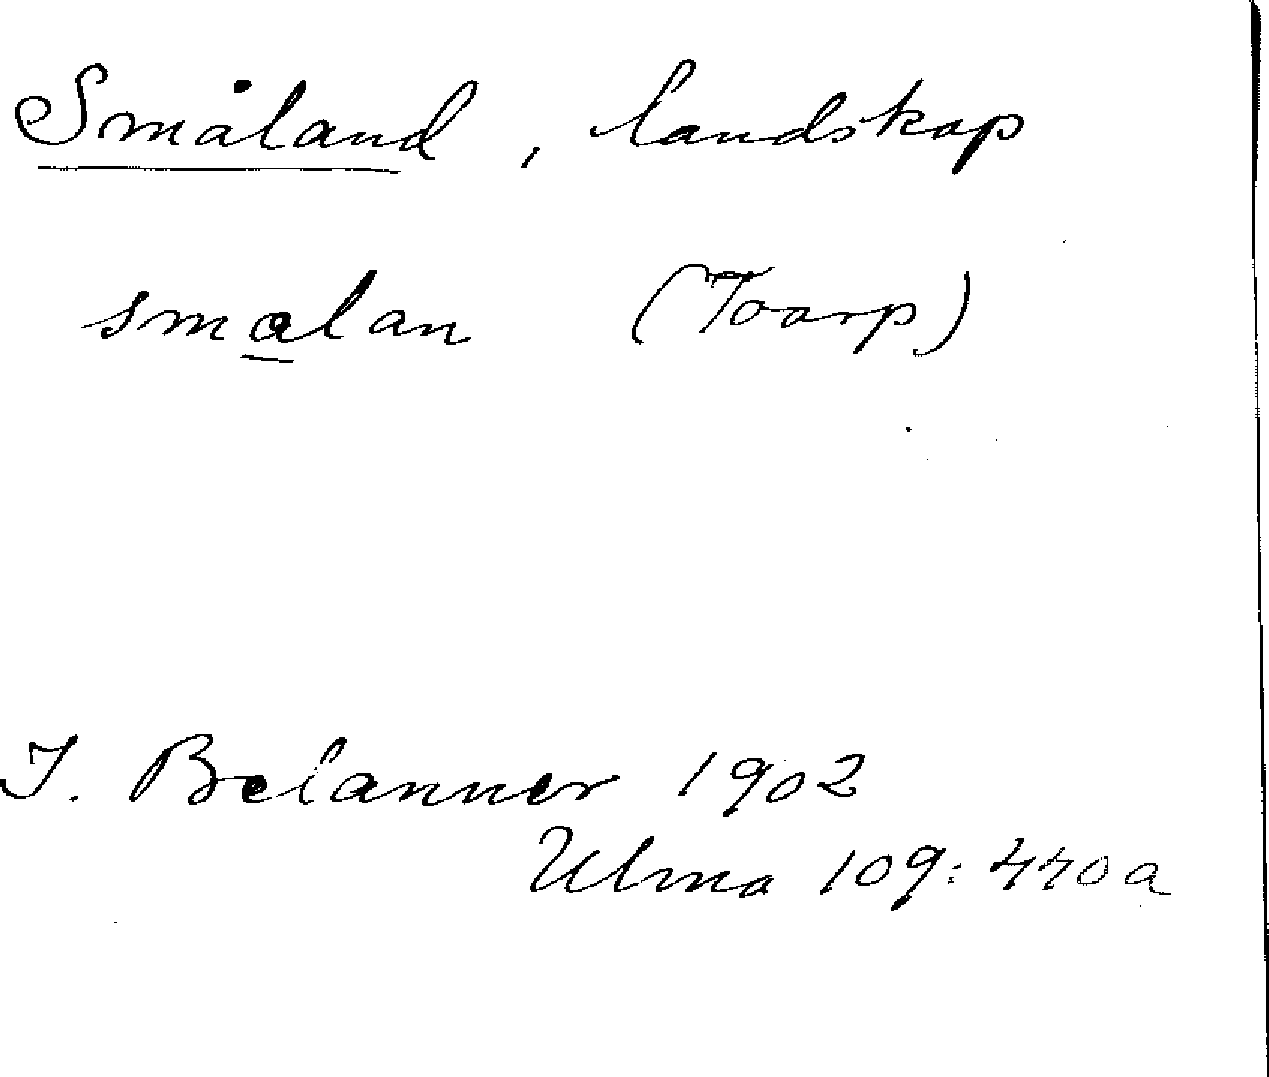 Småland, landskap
smalan (Toarp)
T. Belanner 1902
Ulma 109: 440a